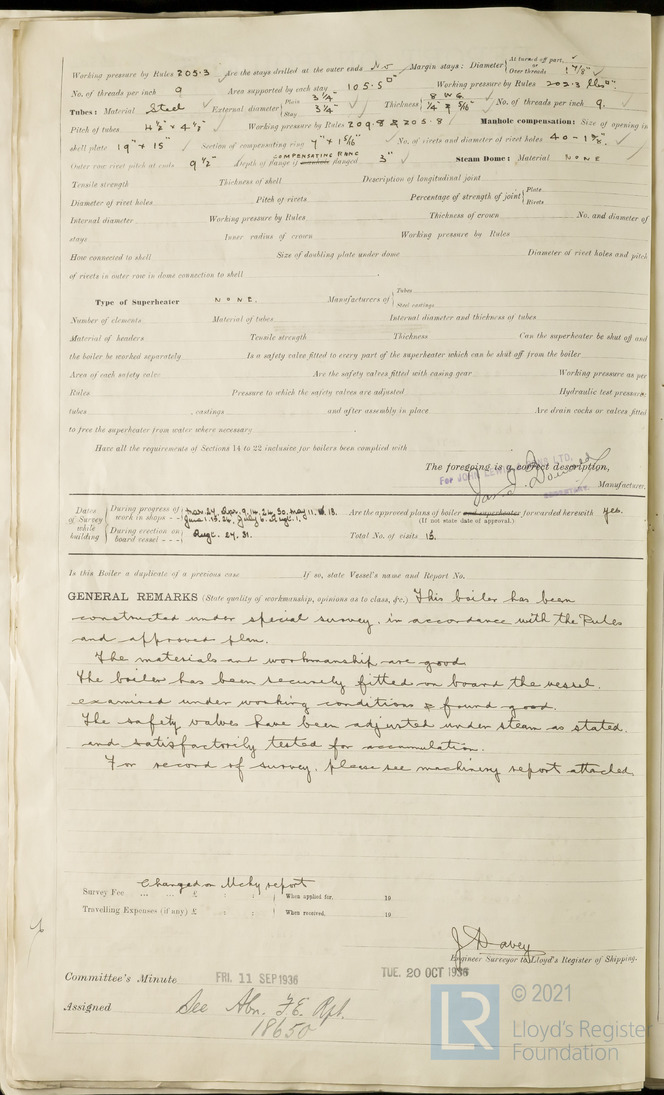 Working pressure by Rules 205.3 Are the stays drilled at the outer ends No Margin stays: Diameter { At turned off part, or Over threads 1 7/8" ✓
No. of threads per inch 9 Area supported by each stay 105.5□" Working pressure by Rules 202.3 lbs□"
Tubes: Material Steel ✓ External diameter { Plain 3 1/4" Stay 3 1/4" ✓ Thickness { 8 W G 1/4" & 5/16" ✓ No. of threads per inch 9.
Pitch of tubes 4 1/2" x 4 1/2" ✓ Working pressure by Rules 209.8 & 205.8 Manhole compensation: Size of opening in
shell plate 19" x 15" ✓ Section of compensating ring 7" x 1 5/16" ✓ No. of rivets and diameter of rivet holes 40 -
Outer row rivet pitch at ends 9 1/2" Depth of flange if manhole flanged COMPENSATING RING 3" ✓ Steam Dome: Material NONE
Tensile strength Thickness of shell Description of longitudinal joint
Diameter of rivet holes Pitch of rivets Percentage of strength of joint { Plate Rivets
Internal diameter Working pressure by Rules Thickness of crown No. and diameter of
stays Inner radius of crown Working pressure by Rules
How connected to shell Size of doubling plate under dome Diameter of rivet holes and pitch
of rivets in outer row in dome connection to shell
Type of Superheater NONE. Manufacturers of { Tubes Steel castings
Number of elements Material of tubes Internal diameter and thickness of tubes
Material of headers Tensile strength Thickness Can the superheater be shut off and
the boiler be worked separately Is a safety valve fitted to every part of the superheater which can be shut off from the boiler
Area of each safety valve Are the safety valves fitted with easing gear Working pressure as per
Rules Pressure to which the safety valves are adjusted Hydraulic test pressure:
tubes , castings and after assembly in place Are drain cocks or valves fitted
to free the superheater from water where necessary
Have all the requirements of Sections 14 to 22 inclusive for boilers been complied with
The foregoing is a correct description,
For JOHN LEWIS & SONS LTD.
SECRETARY.
Manufacturer.
Dates of Survey while building { During progress of work in shops - - Mar. 24. Apr. 9. 14. 24. 30. May 11. 18. June 1. 15. 26. July 6. Augt. 1. During erection on board vessel - - - Augt. 27. 31.
Are the approved plans of boiler and superheater forwarded herewith yes.
(If not state date of approval.)
Total No. of visits 15.
Is this Boiler a duplicate of a previous case If so, state Vessel's name and Report No.
GENERAL REMARKS (State quality of workmanship, opinions as to class, &c.) This boiler has been
constructed under special survey, in accordance with the Rules
and approved plan.
The materials and workmanship are good.
The boiler has been securely fitted on board the vessel,
examined under working conditions & found good.
The safety valves have been adjusted under steam as stated,
and satisfactorily tested for accumulation.
For record of survey, please see machinery report attached.
Charged on Mchy report
Survey Fee ... ... £ : : When applied for, 19
Travelling Expenses (if any) £ : : When received, 19
J Davey
Engineer Surveyor to Lloyd's Register of Shipping.
Committee's Minute FRI. 11 SEP 1936 TUE. 20 OCT 1936
Assigned See Abn. F.E. Rpt.
18650
LR
© 2021
Lloyd's Register
Foundation